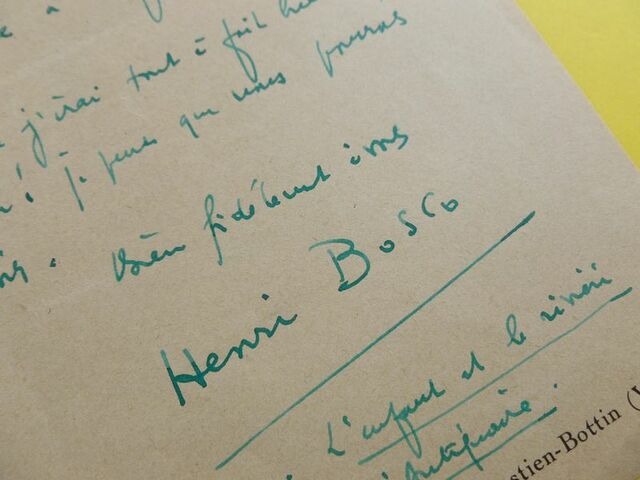 j'irai tout à fait
je pense que vous pourrez
Bien fidèlement à vous
Henri Bosco
L'enfant et la rivière
Antiquaire.
stien-Bottin (V